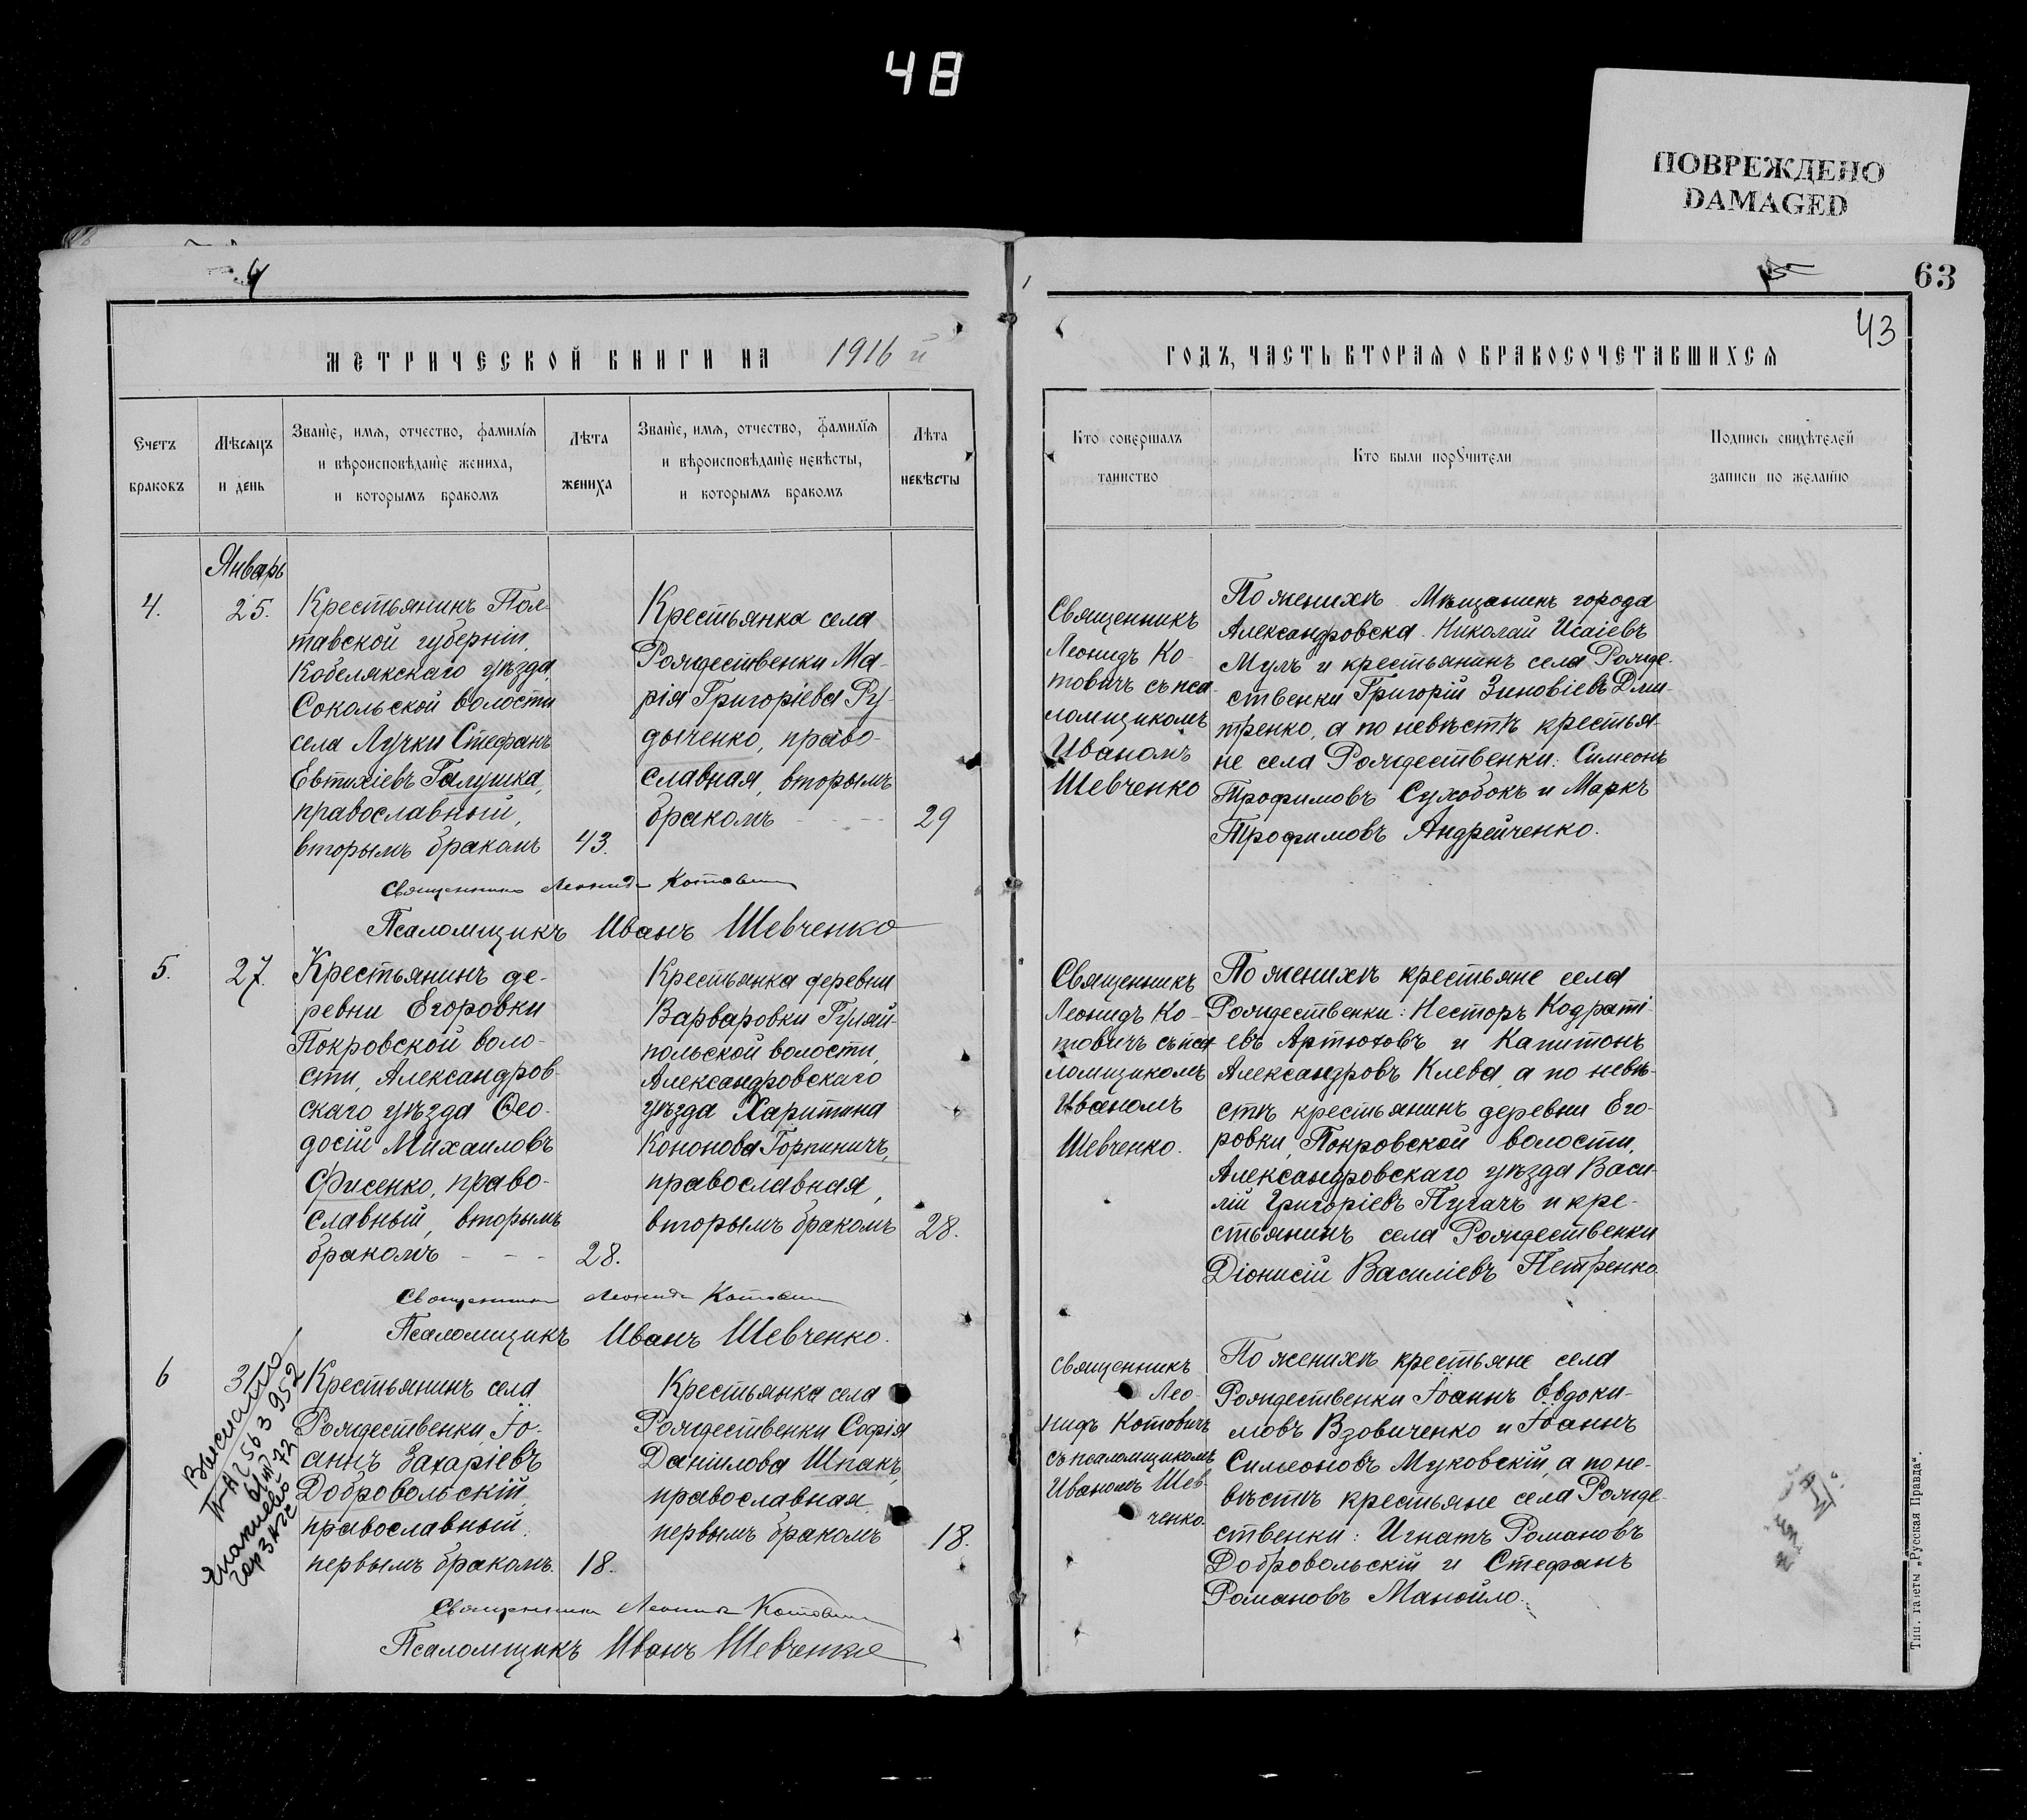 48
ПОВРЕЖДЕНО
DAMAGED
63
43
МЕТРИЧЕСКОЙ КНИГИ НА 1916 й
ГОДЪ, ЧАСТЬ ВТОРАЯ О БРАКОСОЧЕТАВШИХСЯ
Счетъ
браковъ
Мѣсяцъ
и день
Званіе, имя, отчество, фамилія
и вѣроисповѣданіе жениха,
и которымъ бракомъ
Лѣта
жениха
Званіе, имя, отчество, фамилія
и вѣроисповѣданіе невѣсты,
и которымъ бракомъ
Лѣта
невѣсты
Кто совершалъ
таинство
Кто были порȢчители
Подпись свидѣтелей
записи по желанію
Январь
4.
25.
Крестьянинъ Пол-
тавской губерніи,
Кобелякскаго уѣзда,
Сокольской волости
села Лучки Стефанъ
Евтихіевъ Галушка,
православный,
вторымъ бракомъ
43.
Крестьянка села
Рождественки Ма-
рія Григоріева Ру-
дыченко, право-
славная, вторымъ
бракомъ
29
Священникъ
Леонидъ Ко-
товичъ съ пса-
ломщикомъ
Иваномъ
Шевченко
По женихѣ Мѣщанинъ города
Александровска Николай Исаіевъ
Мулъ и крестьянинъ села Рожде-
ственки Григорій Зиновіевъ Дми-
тренко, а по невѣстѣ крестья-
не села Рождественки: Симеонъ
Трофимовъ Сухобокъ и Маркъ
Трофимовъ Андрейченко.
Священникъ Леонидъ Котовичъ
Псаломщикъ Иванъ Шевченко
5.
27.
Крестьянинъ де-
ревни Егоровки
Покровской воло-
сти, Александров-
скаго уѣзда Ѳео-
досій Михаиловъ
Фисенко, право-
славный, вторымъ
бракомъ
28.
Крестьянка деревни
Варваровки Гуляй-
польской волости,
Александровскаго
уѣзда Харитина
Кононова Горпиничъ,
православная,
вторымъ бракомъ
28.
Священникъ
Леонидъ Ко-
товичъ съ пса-
ломщикомъ
Иваномъ
Шевченко.
По женихѣ крестьяне села
Рождественки: Несторъ Кодраті-
евъ Артюховъ и Капитонъ
Александровъ Клева, а по невѣ-
стѣ крестьянинъ деревни Его-
ровки, Покровской волости,
Александровскаго уѣзда Васи-
лій Григоріевъ Пугачъ и кре-
стьянинъ села Рождественки
Діонисій Василіевъ Петренко.
Священникъ Леонидъ Котовичъ
Псаломщикъ Иванъ Шевченко.
6
31
Крестьянинъ села
Рождественки Іо-
аннъ Захаріевъ
Добровольскій,
православный,
первымъ бракомъ.
18.
Крестьянка села
Рождественки Софія
Даніилова Шпакъ,
православная,
первымъ бракомъ
18.
Священникъ
Лео-
нидъ Котовичъ
съ псаломщикомъ
Иваномъ Шев-
ченко.
По женихѣ крестьяне села
Рождественки Іоаннъ Евдоки-
мовъ Вдовиченко и Іоаннъ
Симеоновъ Муковскій, а по не-
вѣстѣ крестьяне села Рожде-
ственки: Игнатъ Романовъ
Добровольскій и Стефанъ
Романовъ Манойло.
Священникъ Леонидъ Котовичъ
Псаломщикъ Иванъ Шевченко
Выслано
563952
72
Тип. газеты „Русская Правда“.